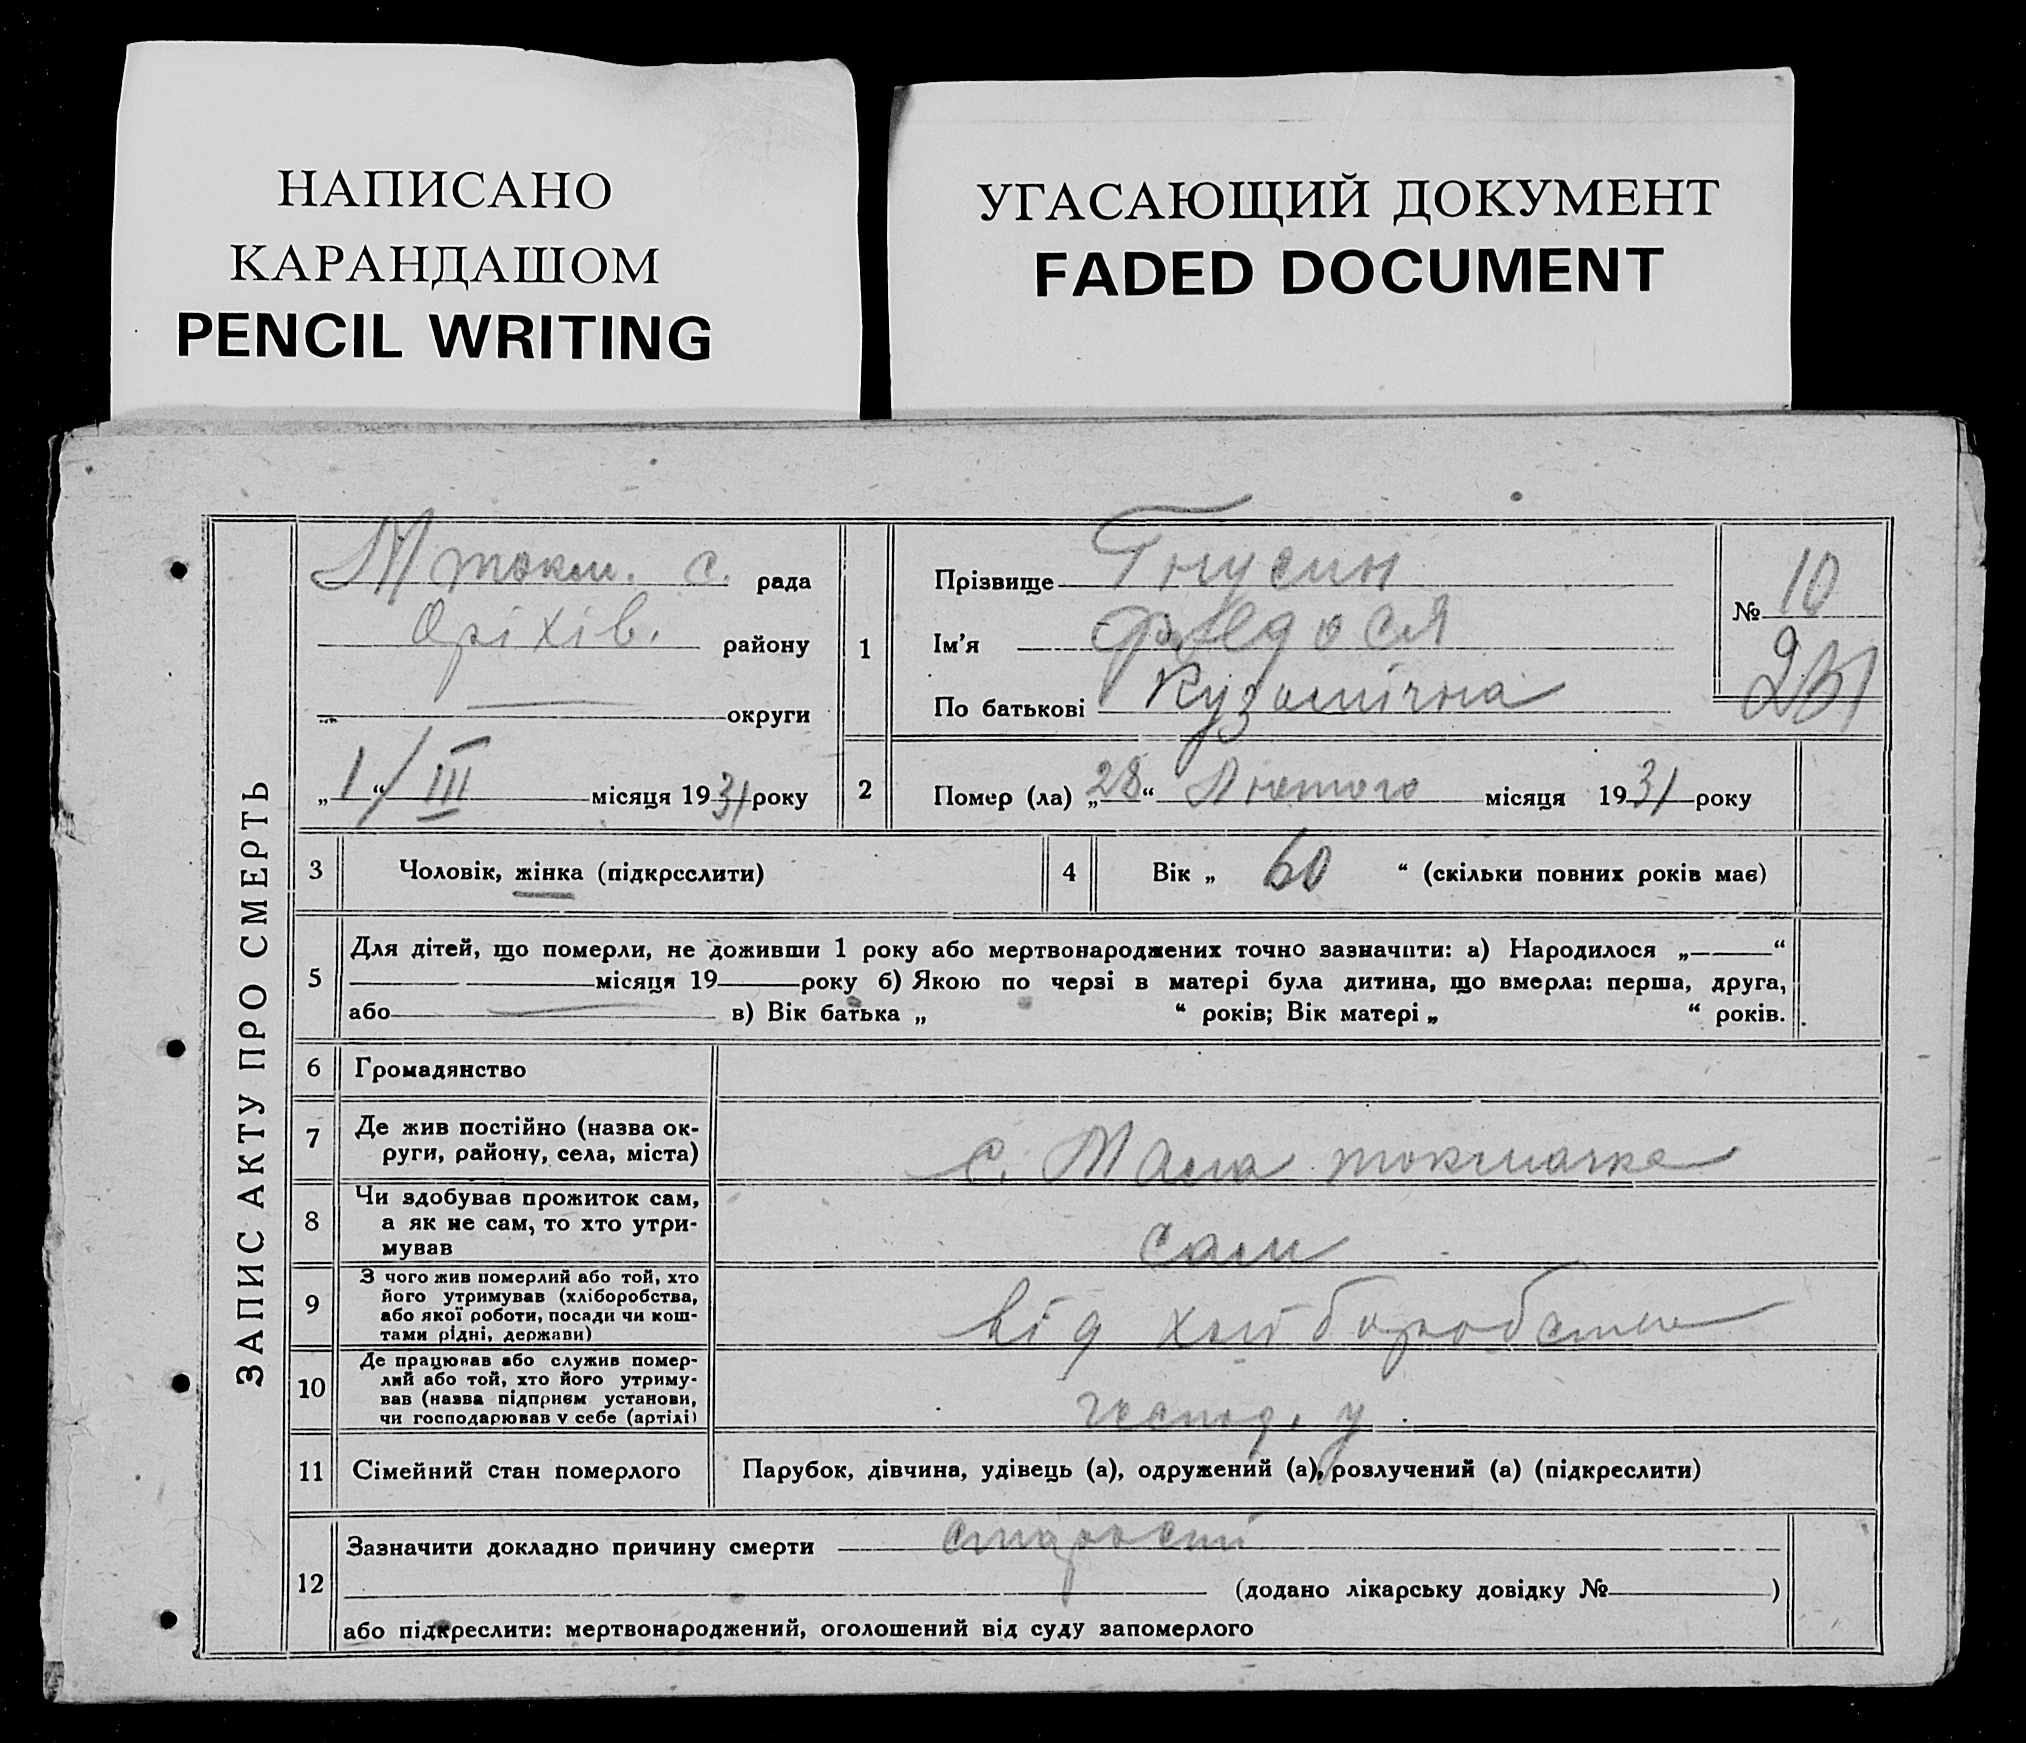 НАПИСАНО
КАРАНДАШОМ
PENCIL WRITING
УГАСАЮЩИЙ ДОКУМЕНТ
FADED DOCUMENT
ЗАПИС АКТУ ПРО СМЕРТЬ
М токм. с. рада
Оріхів. району
округи
„1“/III місяця 1931 року
1
Прізвище Гнусин
Ім'я Федося
По батькові Кузьмічна
№ 10
2
Помер (ла) „28“ Лютого місяця 1931 року
3 Чоловік, жінка (підкреслити)
4 Вік „ 60 “ (скільки повних років має)
5 Для дітей, що померли, не доживши 1 року або мертвонароджених точно зазначити: а) Народилося „ “
місяця 19 року б) Якою по черзі в матері була дитина, що вмерла: перша, друга,
або в) Вік батька „ “ років; Вік матері „ “ років.
6 Громадянство
7 Де жив постійно (назва ок-
руги, району, села, міста)
с. Мала токмачка
8 Чи здобував прожиток сам,
а як не сам, то хто утри-
мував
сам
9 З чого жив померлий або той, хто
його утримував (хліборобства,
або якої роботи, посади чи кош-
тами рідні, держави)
від хліборобства
10 Де працював або служив помер-
лий або той, хто його утриму-
вав (назва підприєм установи,
чи господарював у себе (артілі)
господ. у
11 Сімейний стан померлого
Парубок, дівчина, удівець (а), одружений (а), розлучений (а) (підкреслити)
12 Зазначити докладно причину смерти старости
(додано лікарську довідку № )
або підкреслити: мертвонароджений, оголошений від суду запомерлого